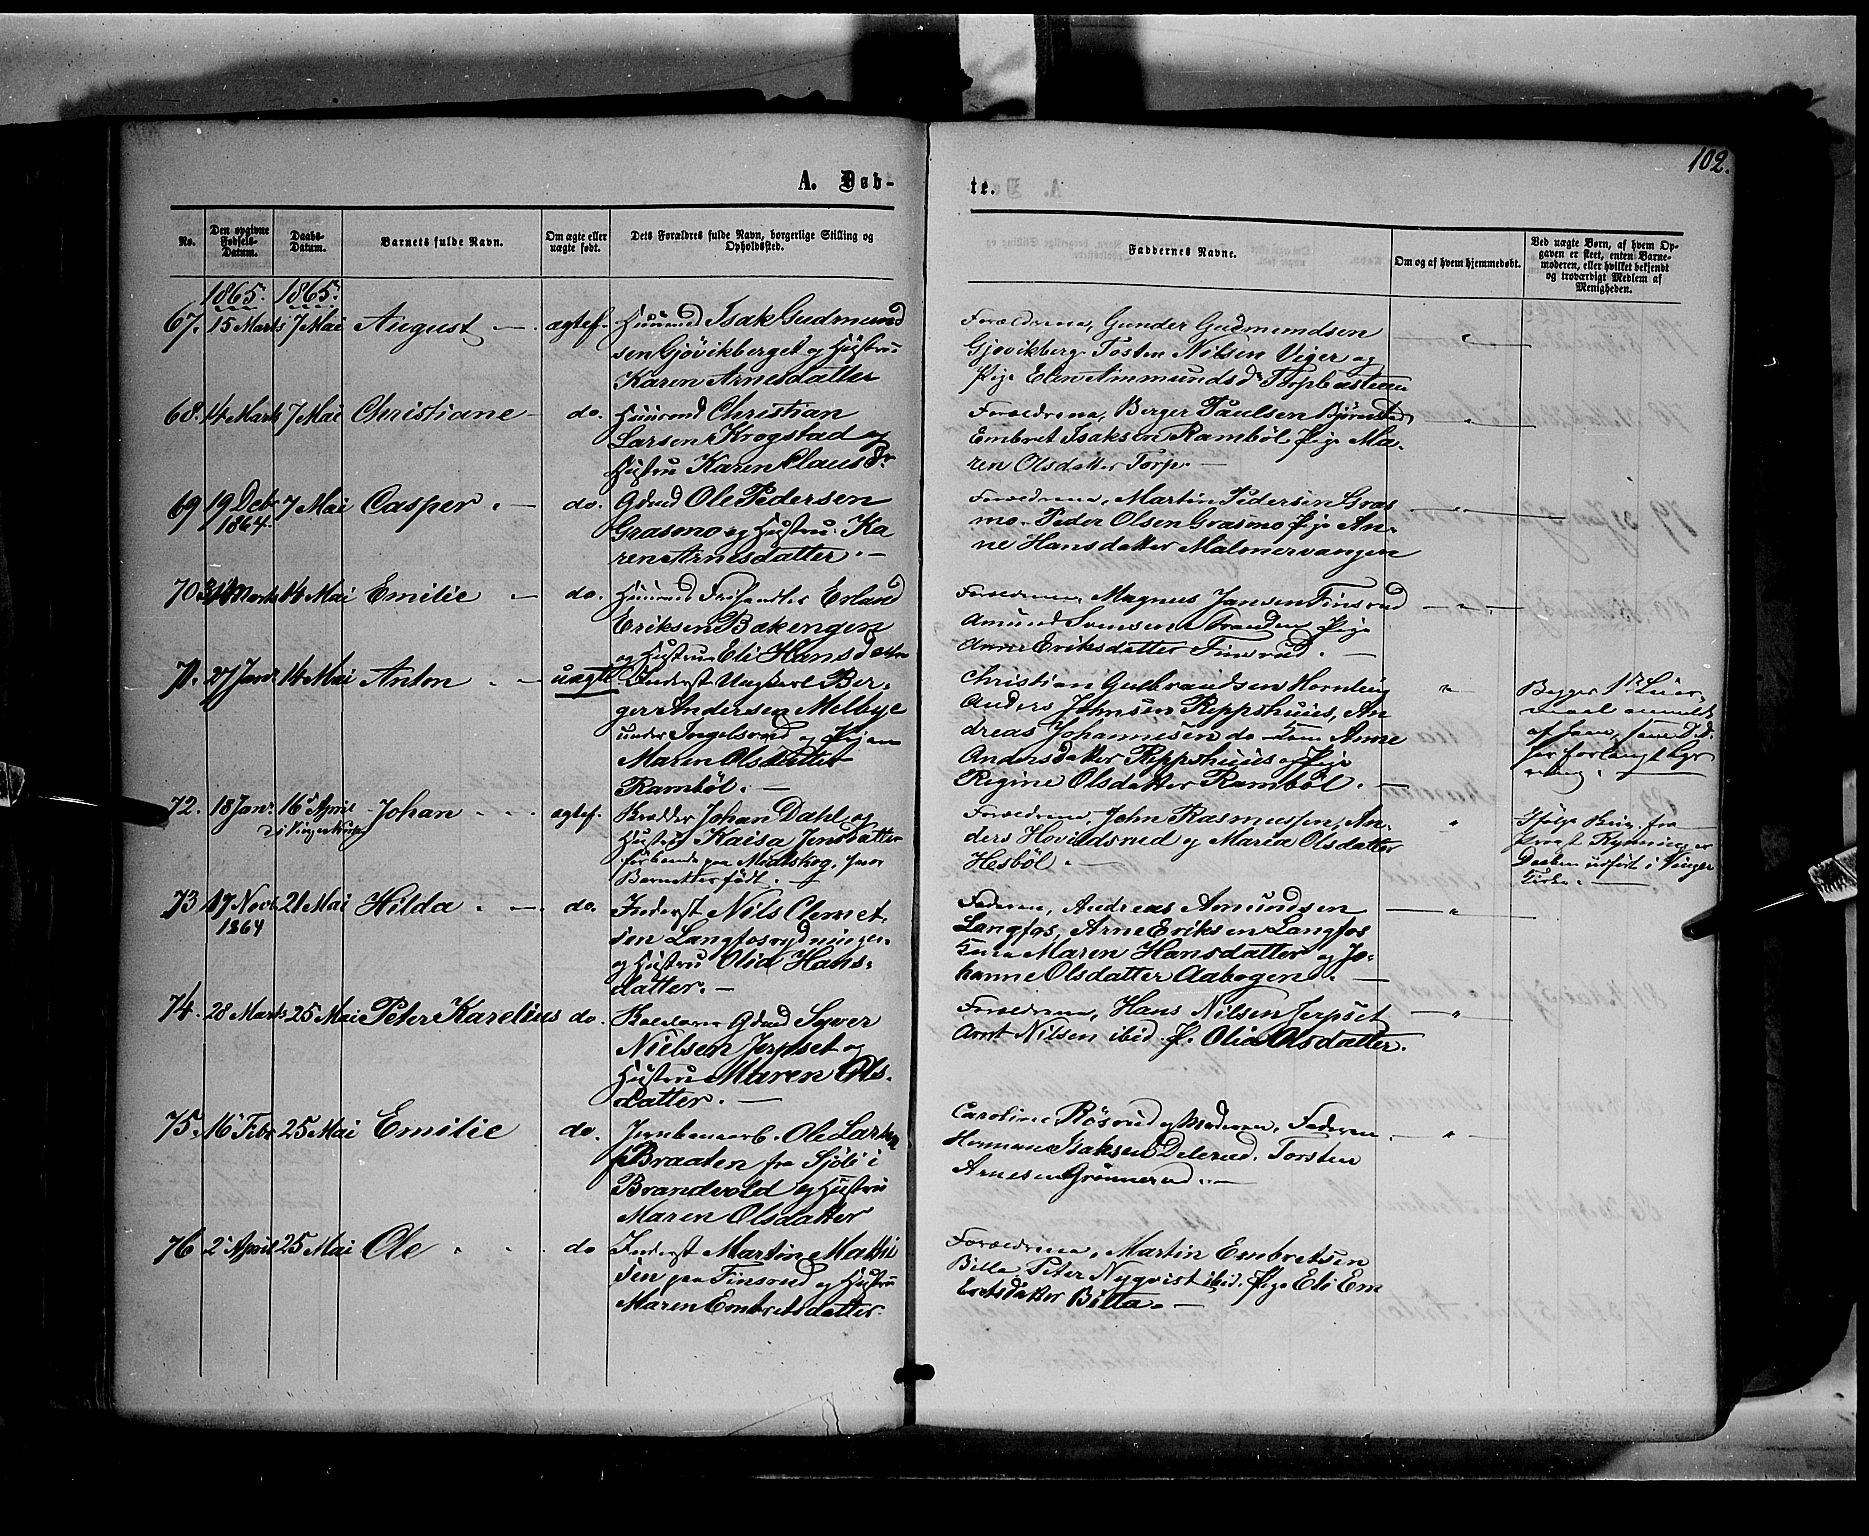 102.
A. Døb-
te.
No.
Den opgivne Fødsels-Datum.
Daabs-Datum.
Barnets fulde Navn.
Om ægte eller uægte født.
Dets Forældres fulde Navn, borgerlige Stilling og Opholdssted.
Faddernes Navne.
Om og af hvem hjemmedøbt.
Ved uægte Børn, af hvem Op-
gaven er skeet, enten Barne-
moderen, eller hvilket bekjendt
og troværdigt Medlem af
Menigheden.
1865. 1865.
67. 15 Marts 7 Mai August ægtef. Huusmd Isak Gudmund
sen Gjövikberget og Hustru
Karen Arnesdatter
Forældrene, Gunder Gudmundsen
Gjövikberg Tosten Nilsen Viger og
Pige Elen Ammundsd
68. 14 Marts 7 Mai Christiane do. Huusmd Christian
Larsen Krogstad og
Hustru Karen Clausdr
Forældrene, Berger Paulsen Björnstad
Embret Isaksen Ramböl, Pige Ma-
ren Olsdatter Torp.
69 19 Debr 1864. 7 Mai Casper do. Gdmd Ole Pedersen
Grasmo og Hustru Ka
ren Arnesdatter.
Forældrene, Martin Pedersen Gras
mo. Peder Olsen Grasmo Pige An-
ne Hansdatter Malmervangen
70 Marts 14 Mai Emilie do. Huusmd Erland
Eriksen Bækengen
og Hustru Eli Hansdatter
Forældrene, Magnus Jansen Finsrud
Amund Svensen Pige
Anne Eriksdatter Finsrud.
71. 27 Janr 14 Mai Anton uægte Inderst Ungkarl Ber-
ger Andersen Melbye
under Ingelsrud og Pigen
Maren Olsdatter
Ramböl.
Christian Gulbrandsen Hornling
Anders Johnsen Reppshuus, An
dreas Johannesen do Anne
Andersdatter Reppshuus og Pige
Regine Olsdatter Ramböl.
Begges 1ste Leier-
maal anmeldt
af
har forlangt
72. 18 Janr. 16 April Johan ægtef. Johan Dahl og
Hustru Kaisa Jensdatter
paa Medskog, hvor
Barnet er född.
i Vinger Kirke
Forældrene, John Rasmussen, An-
ders Hovildsrud og Maria Olsdatter
Hesböl.
Ifölge Brev fra
Provst Rynning er
Daaben udfört i Vinger
Kirke.
73 17 Novbr 1864 21 Mai Hilda do. Inderst Nils Clemet-
sen Langfosrydningen
og Hustru Olia Hans-
datter.
Faderen, Andreas Amundsen
Langfos, Arne Eriksen Langfos
Maren Hansdatter og Jo-
hanne Olsdatter Aabogen.
74. 28 Marts 25 Mai Peter Karelius do. Gdmd Syver
Nielsen Jerpset og
Hustru Maren Ols-
datter.
Forældrene, Hans Nilsen Jerpset
Arnt Nilsen ibid. P. Olia Olsdatter.
75. 16 Febr 25 Mai Emilie do. Ole Larsen
Braaten fra Sjöli i
Brandvold og Hustru
Maren Olsdatter
Caroline Rösrud og Moderen, Faderen
Herman Isaksen Delerud. Torsten
Arnesen Grönnerud.
76 2 April 25 Mai Ole do Inderst Martin Mathi
sen paa Finsrud og Hustru
Maren Embretsdatter.
Forældrene, Martin Embretsen
Billa Peter Nyqvist ibid. Pige Eli Em
bretsdatter Billa.